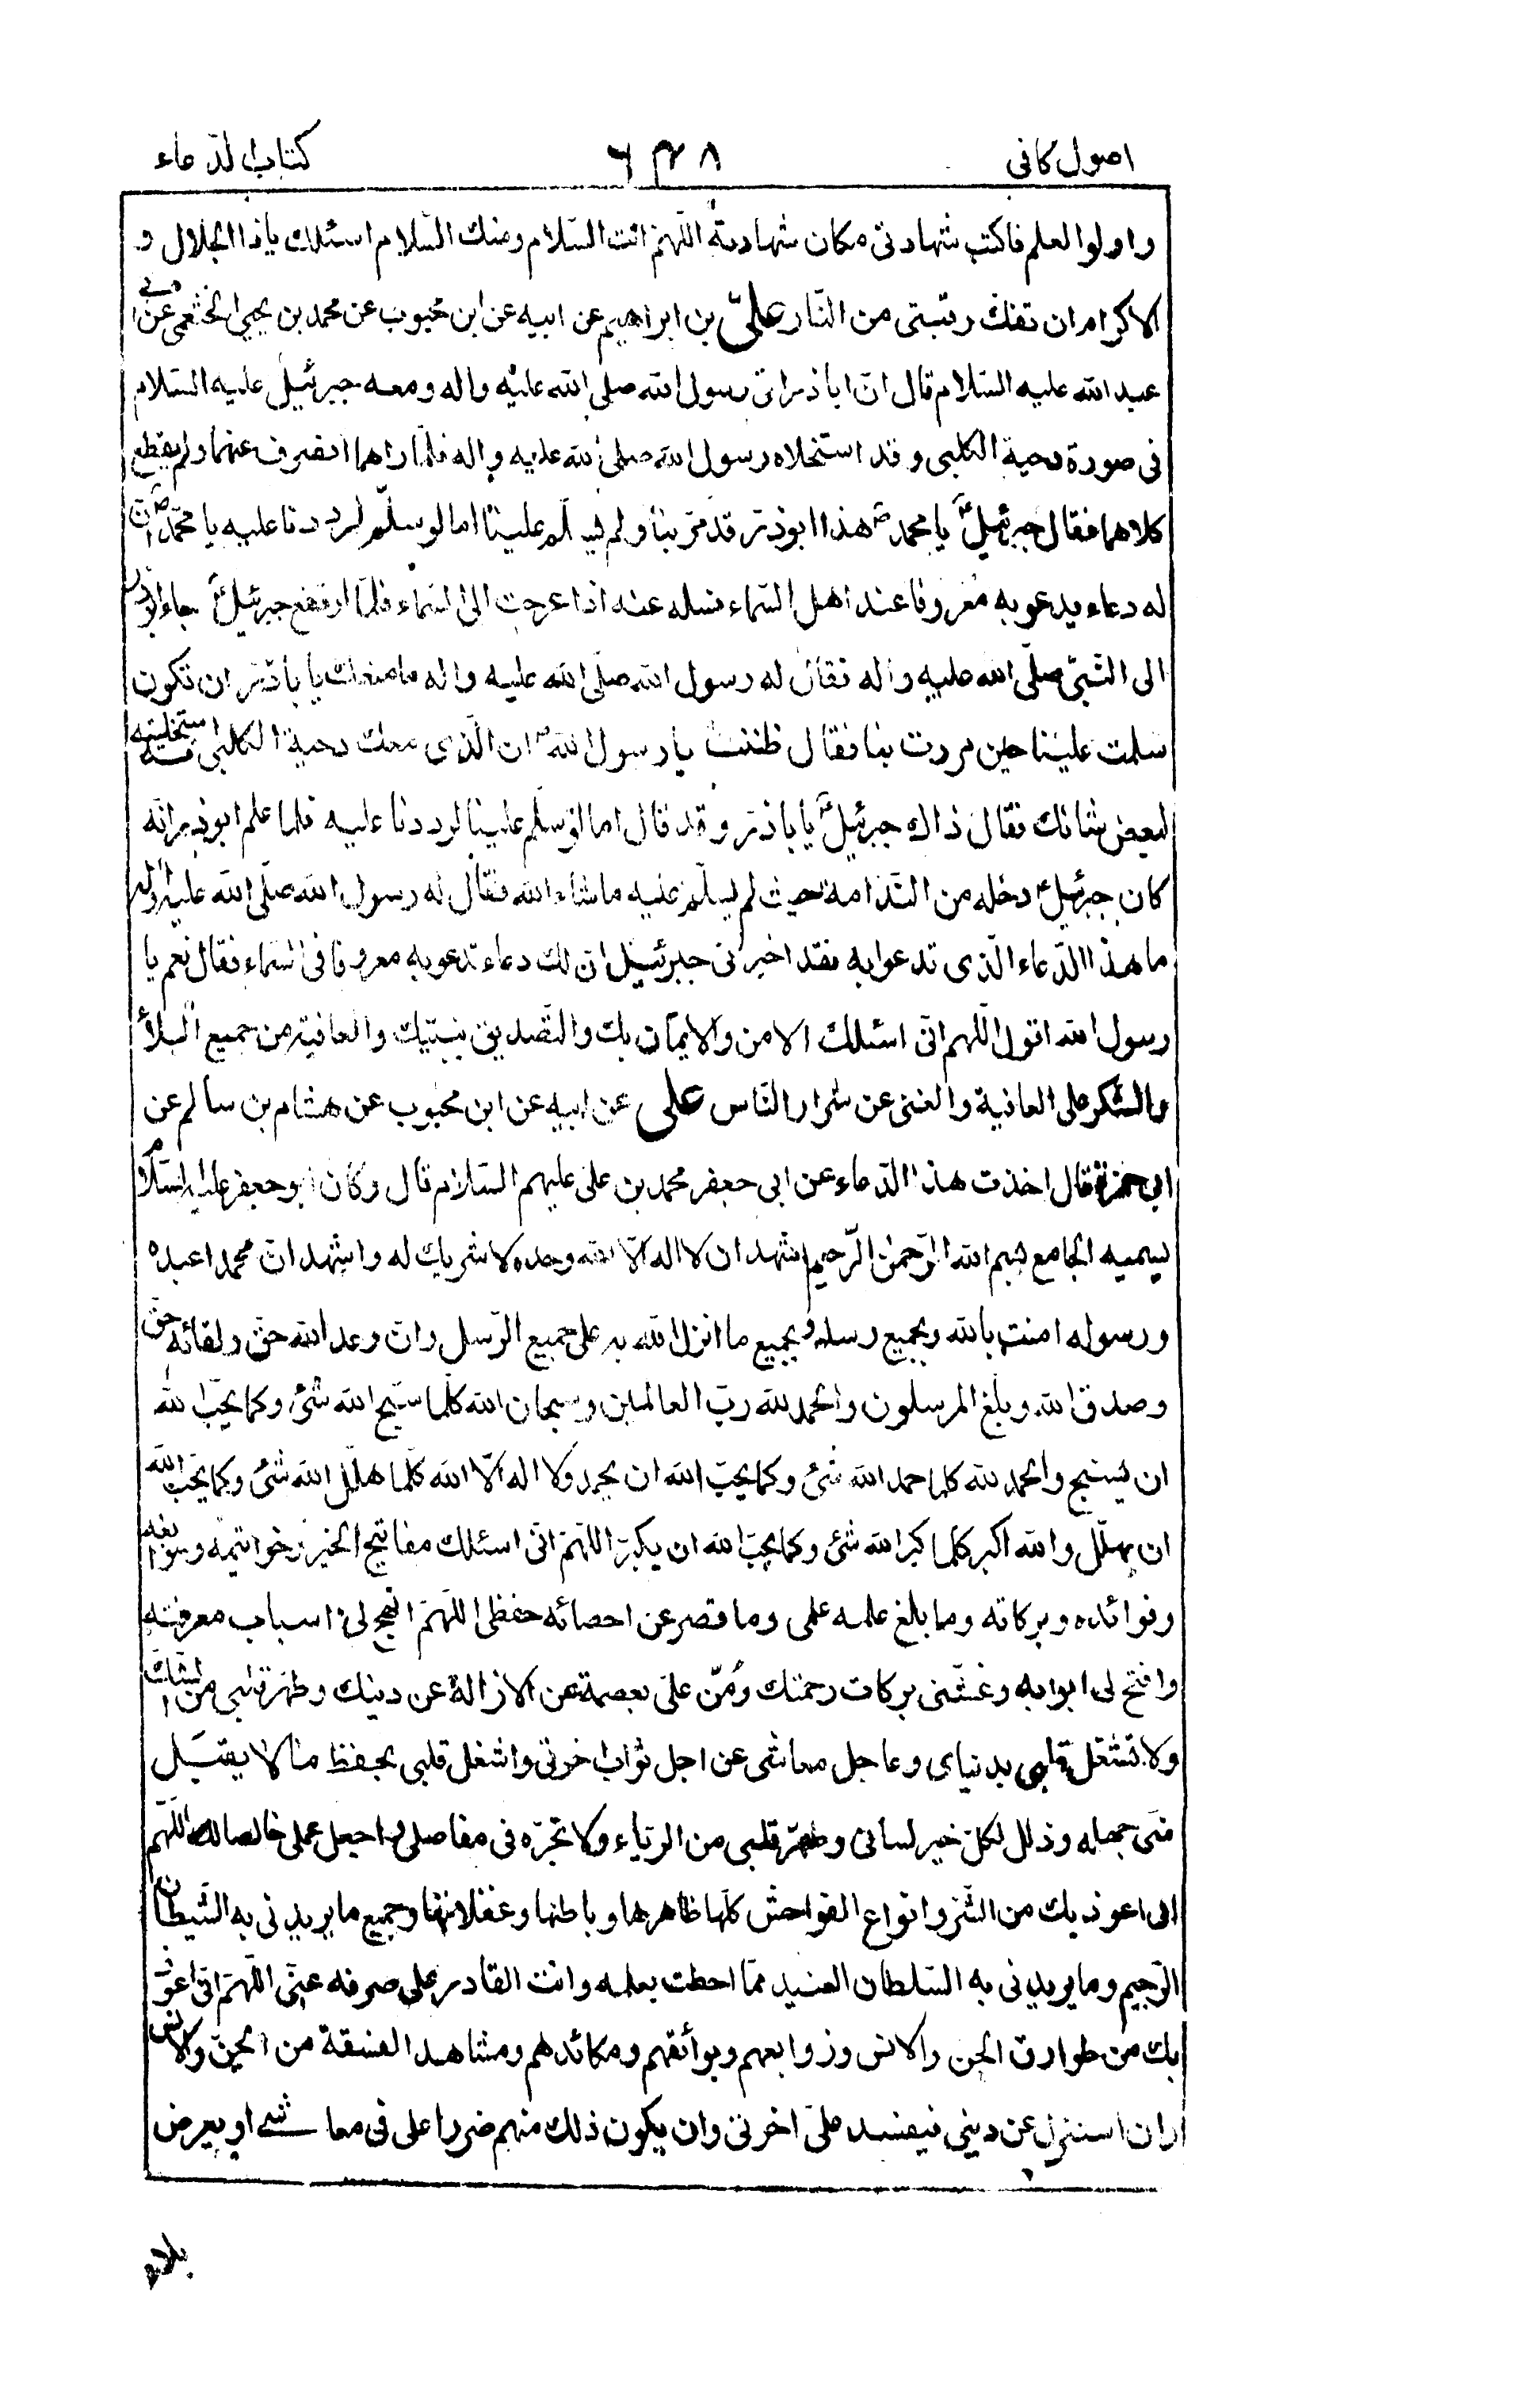 اصول كافى ٦٣٨ كتاب الدّعاء
واولوا العلم فاكتب شهادتى مكان شهادته اللّهمّ انت السّلام ومنك السّلام اسئلك ياذا الجلال و
الاكرام ان تفك رقبتى من النّار علىّ بن ابراهيم عن ابيه عن ابن محبوب عن محمد بن يحيى الخثعمى عن ابى
عبد الله عليه السّلام قال انّ اباذر اتى رسول الله صلى الله عليه واله ومعه جبرئيل عليه السّلام
فى صورة دحية الكلبى وقد استخلاه رسول الله صلى الله عليه واله فلمّا راهما انصرف عنهما ولم يقطع
كلامهما فقال جبرئيلؑ يا محمدؐ هذا ابوذرّ قد مرّ بنا ولم يسلّم علينا اما لو سلّم لرددنا عليه يا محمّدؐ انّ
له دعاء يدعو به معروفا عند اهل السّماء فسله عنه اذا عرجت الى السّماء فلمّا ارتفع جبرئيلؑ جاء ابوذر
الى النّبىّ صلّى الله عليه واله فقال له رسول الله صلّى الله عليه واله مامنعك يا باذرّ ان تكون
سلمت علينا حين مررت بنا فقال ظننت يا رسول اللهؐ ان الّذى معك دحية الكلبى قد استخليته
لبعض شانك فقال ذاك جبرئيلؑ يا باذرّ وقد قال اما لو سلّم علينا لرددنا عليه فلما علم ابوذر انّه
كان جبرئيلؑ دخله من النّدامة حيث لم يسلّم عليه ماشاء الله فقال له رسول الله صلّى الله عليه واله
ما هذا الدّعاء الّذى تدعوا به فقد اخبرنى جبرئيل ان لك دعاء تدعو به معروفا فى السّماء فقال نعم يا
رسول الله اقول اللّهم انّى اسئلك الامن والايمان بك والتّصديق بنبيّك والعافية من جميع البلاء
والشّكر على العافية والغنى عن شرار النّاس على عن ابيه عن ابن محبوب عن هشام بن سالم عن
ابى حمزة قال اخذت هذا الدّعاء عن ابى جعفر محمد بن على عليهم السّلام قال وكان ابو جعفر عليه السّلام
يسميه الجامع بسم الله الرّحمن الرّحيم اشهد ان لا اله الّا الله وحده لا شريك له واشهد انّ محمدا عبده
ورسوله امنت بالله وبجميع رسله وبجميع ما انزل الله به على جميع الرّسل وانّ وعد الله حق ولقائه حق
وصدق الله وبلّغ المرسلون والحمد لله ربّ العالمين وسبحان الله كلّما سبّح الله شئ وكما يحبّ الله
ان يسبّح والحمد لله كلما حمد الله شئ وكما يحبّ الله ان يحمد ولا اله الّا الله كلّما هلّل الله شئ وكما يحبّ الله
ان يهلّل والله اكبر كلما كبر الله شئ وكما يحبّ الله ان يكبّر اللّهمّ انّى اسئلك مفاتيح الخير وخواتيمه وسوابغه
وفوائده وبركاته وما بلغ علمه علمى وما قصر عن احصائه حفظى اللّهمّ انهج لى اسباب معرفته
وافتح لى ابوابه وغشّنى بركات رحمتك ومُنّ علىّ بعصمة عن الازالة عن دينك وطهّر قلبى من الشّك
ولا تشغل قلبى بدنياى وعاجل معاشى عن اجل ثواب اخرتى واشغل قلبى بحفظ ما لا يقبل
منّى جهله وذلل لكلّ خير لسانى وطهّر قلبى من الرّياء ولا تجره فى مفاصلى واجعل عملى خالصا لك اللّهمّ
انى اعوذ بك من الشّرّ وانواع الفواحش كلّها ظاهرها وباطنها وغفلاتها وجميع ما يريدنى به الشّيطان
الرّجيم وما يريدنى به السّلطان العنيد ممّا احطت بعلمه وانت القادر على صرفه عنّى اللّهمّ انّى اعوذ
بك من طوارق الجن والانس وزوابعهم وبوائقهم ومكائدهم ومشاهد الفسقة من الجنّ والانس
وان استنزل عن دينى فيفسد علىّ اخرتى وان يكون ذلك منهم ضررا على فى معاشى او يعرض
بلاء